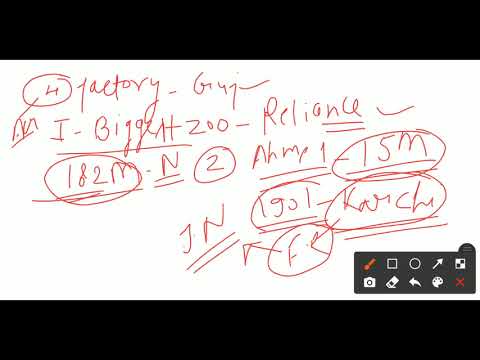 ④ factory - Guj
I - Biggest zoo - Reliance
182M - N ② Ahm - 15M
J.N 1901 - Karachi